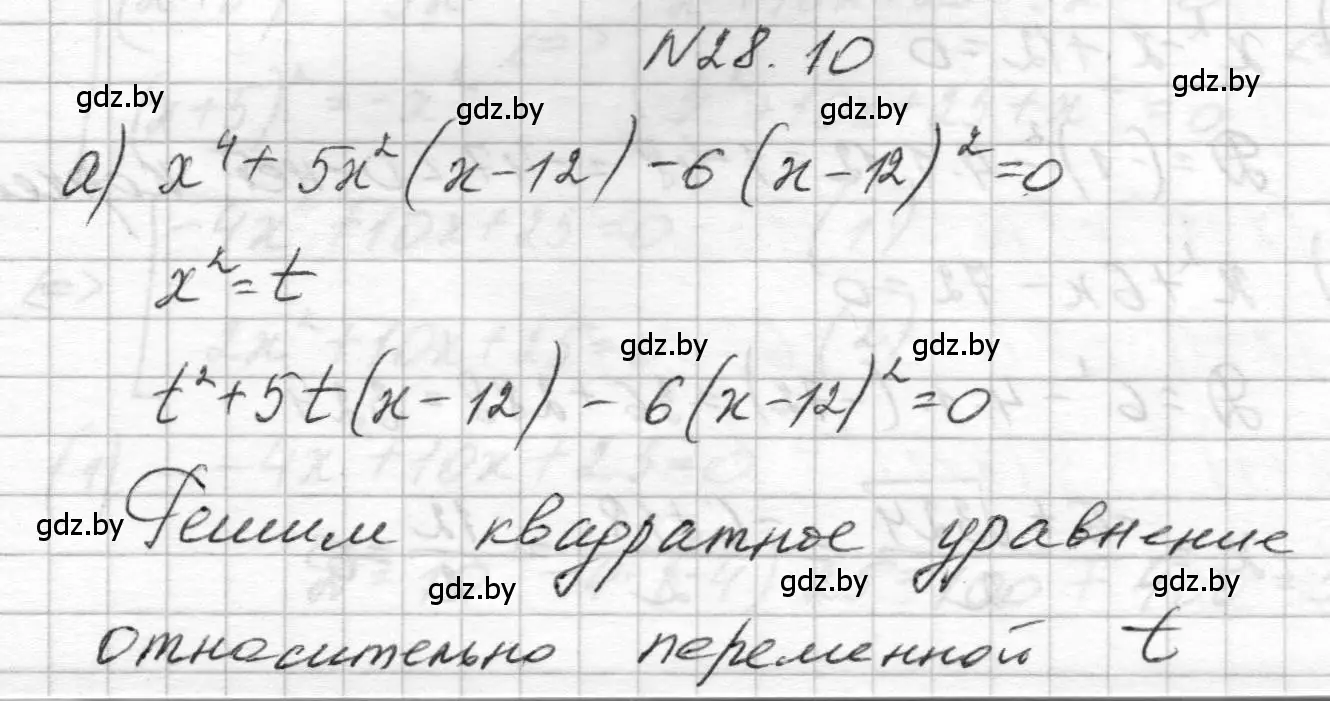 N28.10
gdz.by gdz.by gdz.by gdz.by
а) x⁴ + 5x² (x - 12) - 6 (x - 12)² = 0
x² = t
gdz.by gdz.by
t² + 5t (x - 12) - 6 (x - 12)² = 0
gdz.by Решим квадратное уравнение
gdz.by gdz.by gdz.by
относительно переменной t